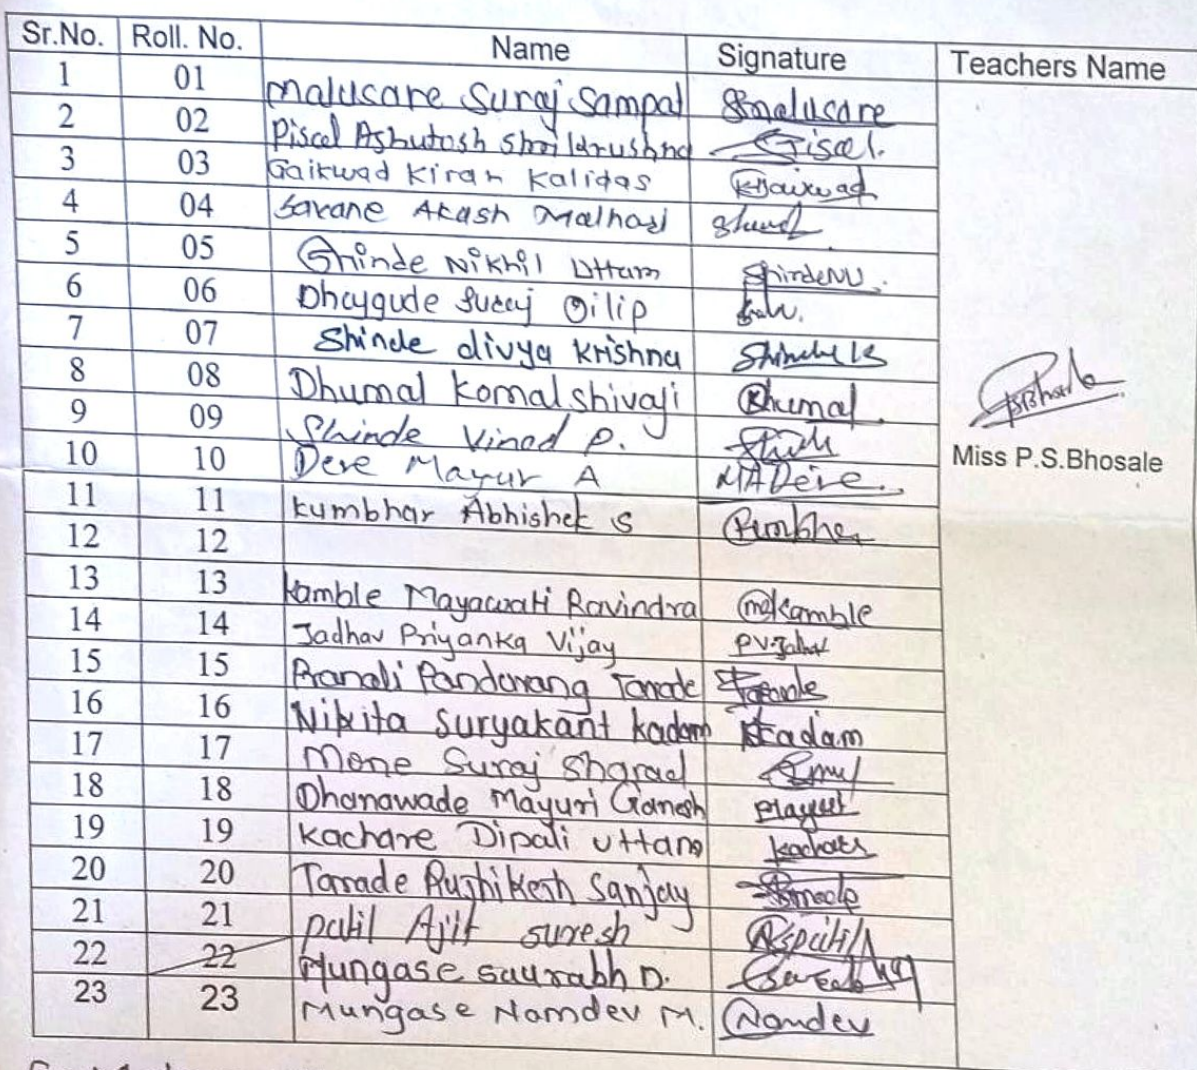 Sr.No. Roll. No. Name Signature Teachers Name
1 01 Malusare Suraj Sampat Smalusare
2 02 Pisal Ashutosh Shrikrushna Pisal.
3 03 Gaikwad Kiran Kalidas KGaikwad
4 04 Savane Akash Malhari
5 05 Shinde Nikhil Uttam ShindeNU.
6 06 Dhaygude Suraj Dilip
7 07 Shinde divya Krishna Shinde
8 08 Dhumal Komal shivaji Dhumal
9 09 Shinde Vinod P.
10 10 Dere Mayur A MADere.
11 11 Kumbhar Abhishek S
12 12
13 13 Kamble Mayawati Ravindra Kamble
14 14 Jadhav Priyanka Vijay PV.Jadhav
15 15 Pranali Pandurang Tarade
16 16 Nikita Suryakant kadam Kadam
17 17 Mone Suraj Sharad
18 18 Dhanawade Mayuri Ganesh
19 19 Kachare Dipali Uttam Kachare
20 20 Tarade Rushikesh Sanjay
21 21 Patil Ajit Suresh ASpatil
22 22 Mungase Saurabh D.
23 23 Mungase Namdev M. Namdev
Miss P.S.Bhosale